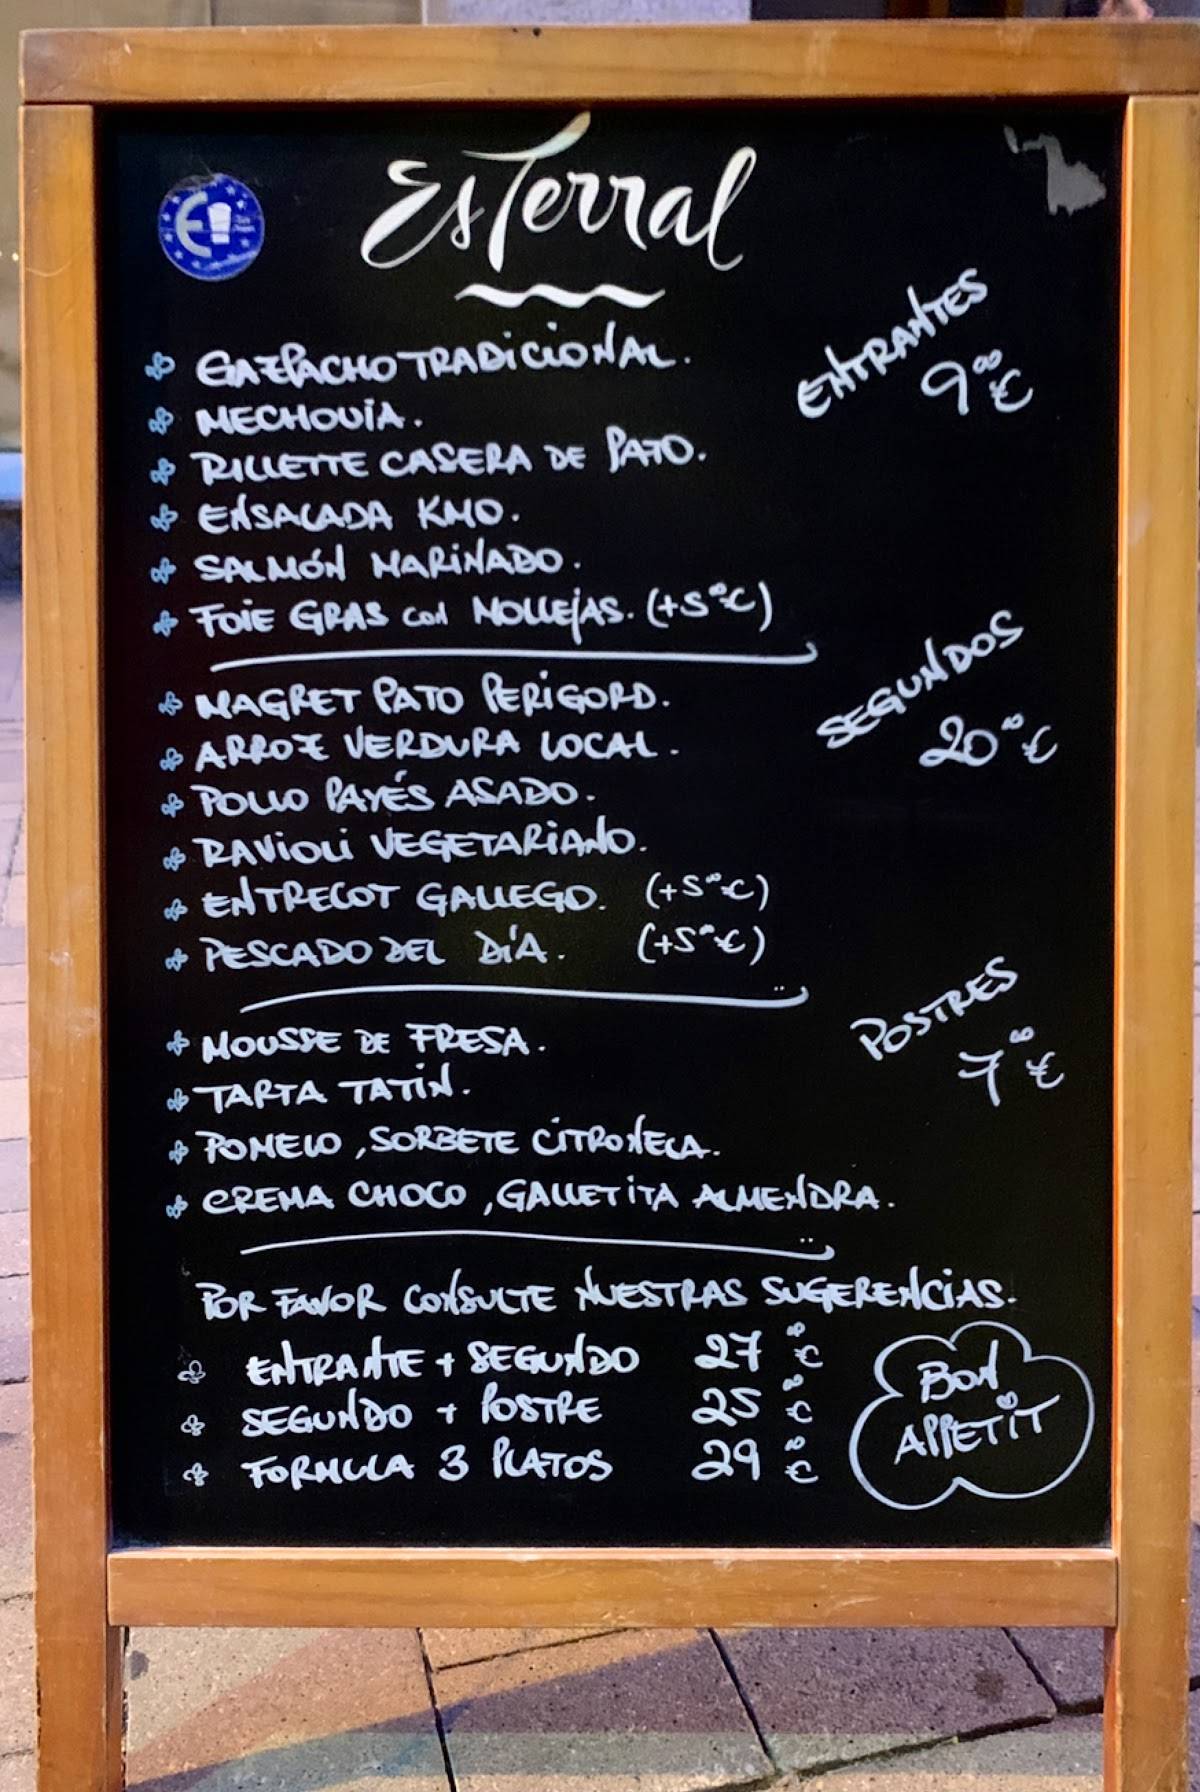 Es Terral
ENTRANTES
9⁰⁰€
GAZPACHO TRADICIONAL.
MECHOUIA.
RILLETTE CASERA DE PATO.
ENSALADA KM0.
SALMÓN MARINADO.
FOIE GRAS con MOLLEJAS. (+5⁰⁰€)
SEGUNDOS
20⁰⁰€
MAGRET PATO PERIGORD.
ARROZ VERDURA LOCAL.
POLLO PAYÉS ASADO.
RAVIOLI VEGETARIANO.
ENTRECOT GALLEGO. (+5⁰⁰€)
PESCADO DEL DÍA. (+5⁰⁰€)
POSTRES
7⁰⁰€
MOUSSE DE FRESA.
TARTA TATIN.
POMELO, SORBETE CITRONELA.
CREMA CHOCO, GALLETITA ALMENDRA.
POR FAVOR CONSULTE NUESTRAS SUGERENCIAS.
ENTRANTE + SEGUNDO 27⁰⁰€
SEGUNDO + POSTRE 25⁰⁰€
FORMULA 3 PLATOS 29⁰⁰€
BON
APPETIT